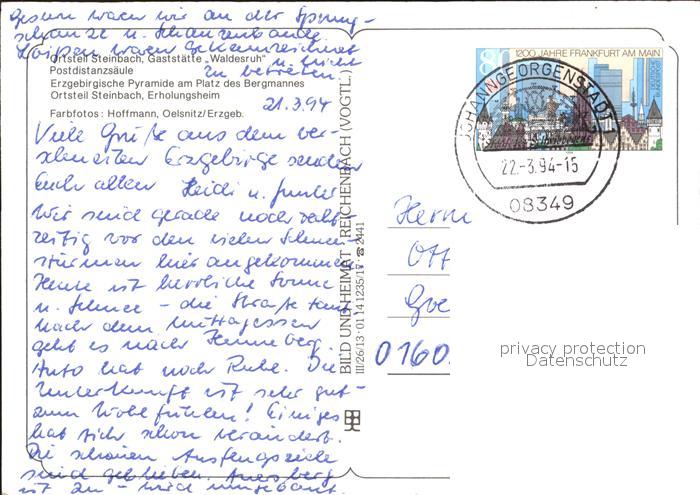 Gestern waren wir an der Sprung-
schanze u. Schanzenbaude.
Loipen waren gekennzeichnet
u. nicht
zu betreten.
Ortsteil Steinbach, Gaststätte „Waldesruh"
Postdistanzsäule
Erzgebirgische Pyramide am Platz des Bergmannes
Ortsteil Steinbach, Erholungsheim
Farbfotos: Hoffmann, Oelsnitz/Erzgeb.
21.3.94
Viele Grüße aus dem ver-
schneiten Erzgebirge senden
Euch allen Heidi u.
Wir sind gerade noch recht-
zeitig vor den vielen Schnee-
stürmen hier angekommen.
Heute ist herrliche Sonne
u. Schnee – die Straße
Nach dem Mittagessen
geht es nach Henneberg.
Auto hat noch Ruhe. Die
Unterkunft ist sehr gut –
zum Wohlfühlen! Einiges
hat sich schon verändert.
Die schönen Ausflugsziele
sind geblieben. Auersberg
ist zu – wird umgebaut.
BILD UND HEIMAT REICHENBACH (VOGTL.)
III/26/13 · 01 14 1235/17 ☎ 2441
80
1200 JAHRE FRANKFURT AM MAIN
DEUTSCHE BUNDESPOST
JOHANNGEORGENSTADT 1
22.-3.94-15
08349
Herrn
Ott
Goe
0160
privacy protection
Datenschutz